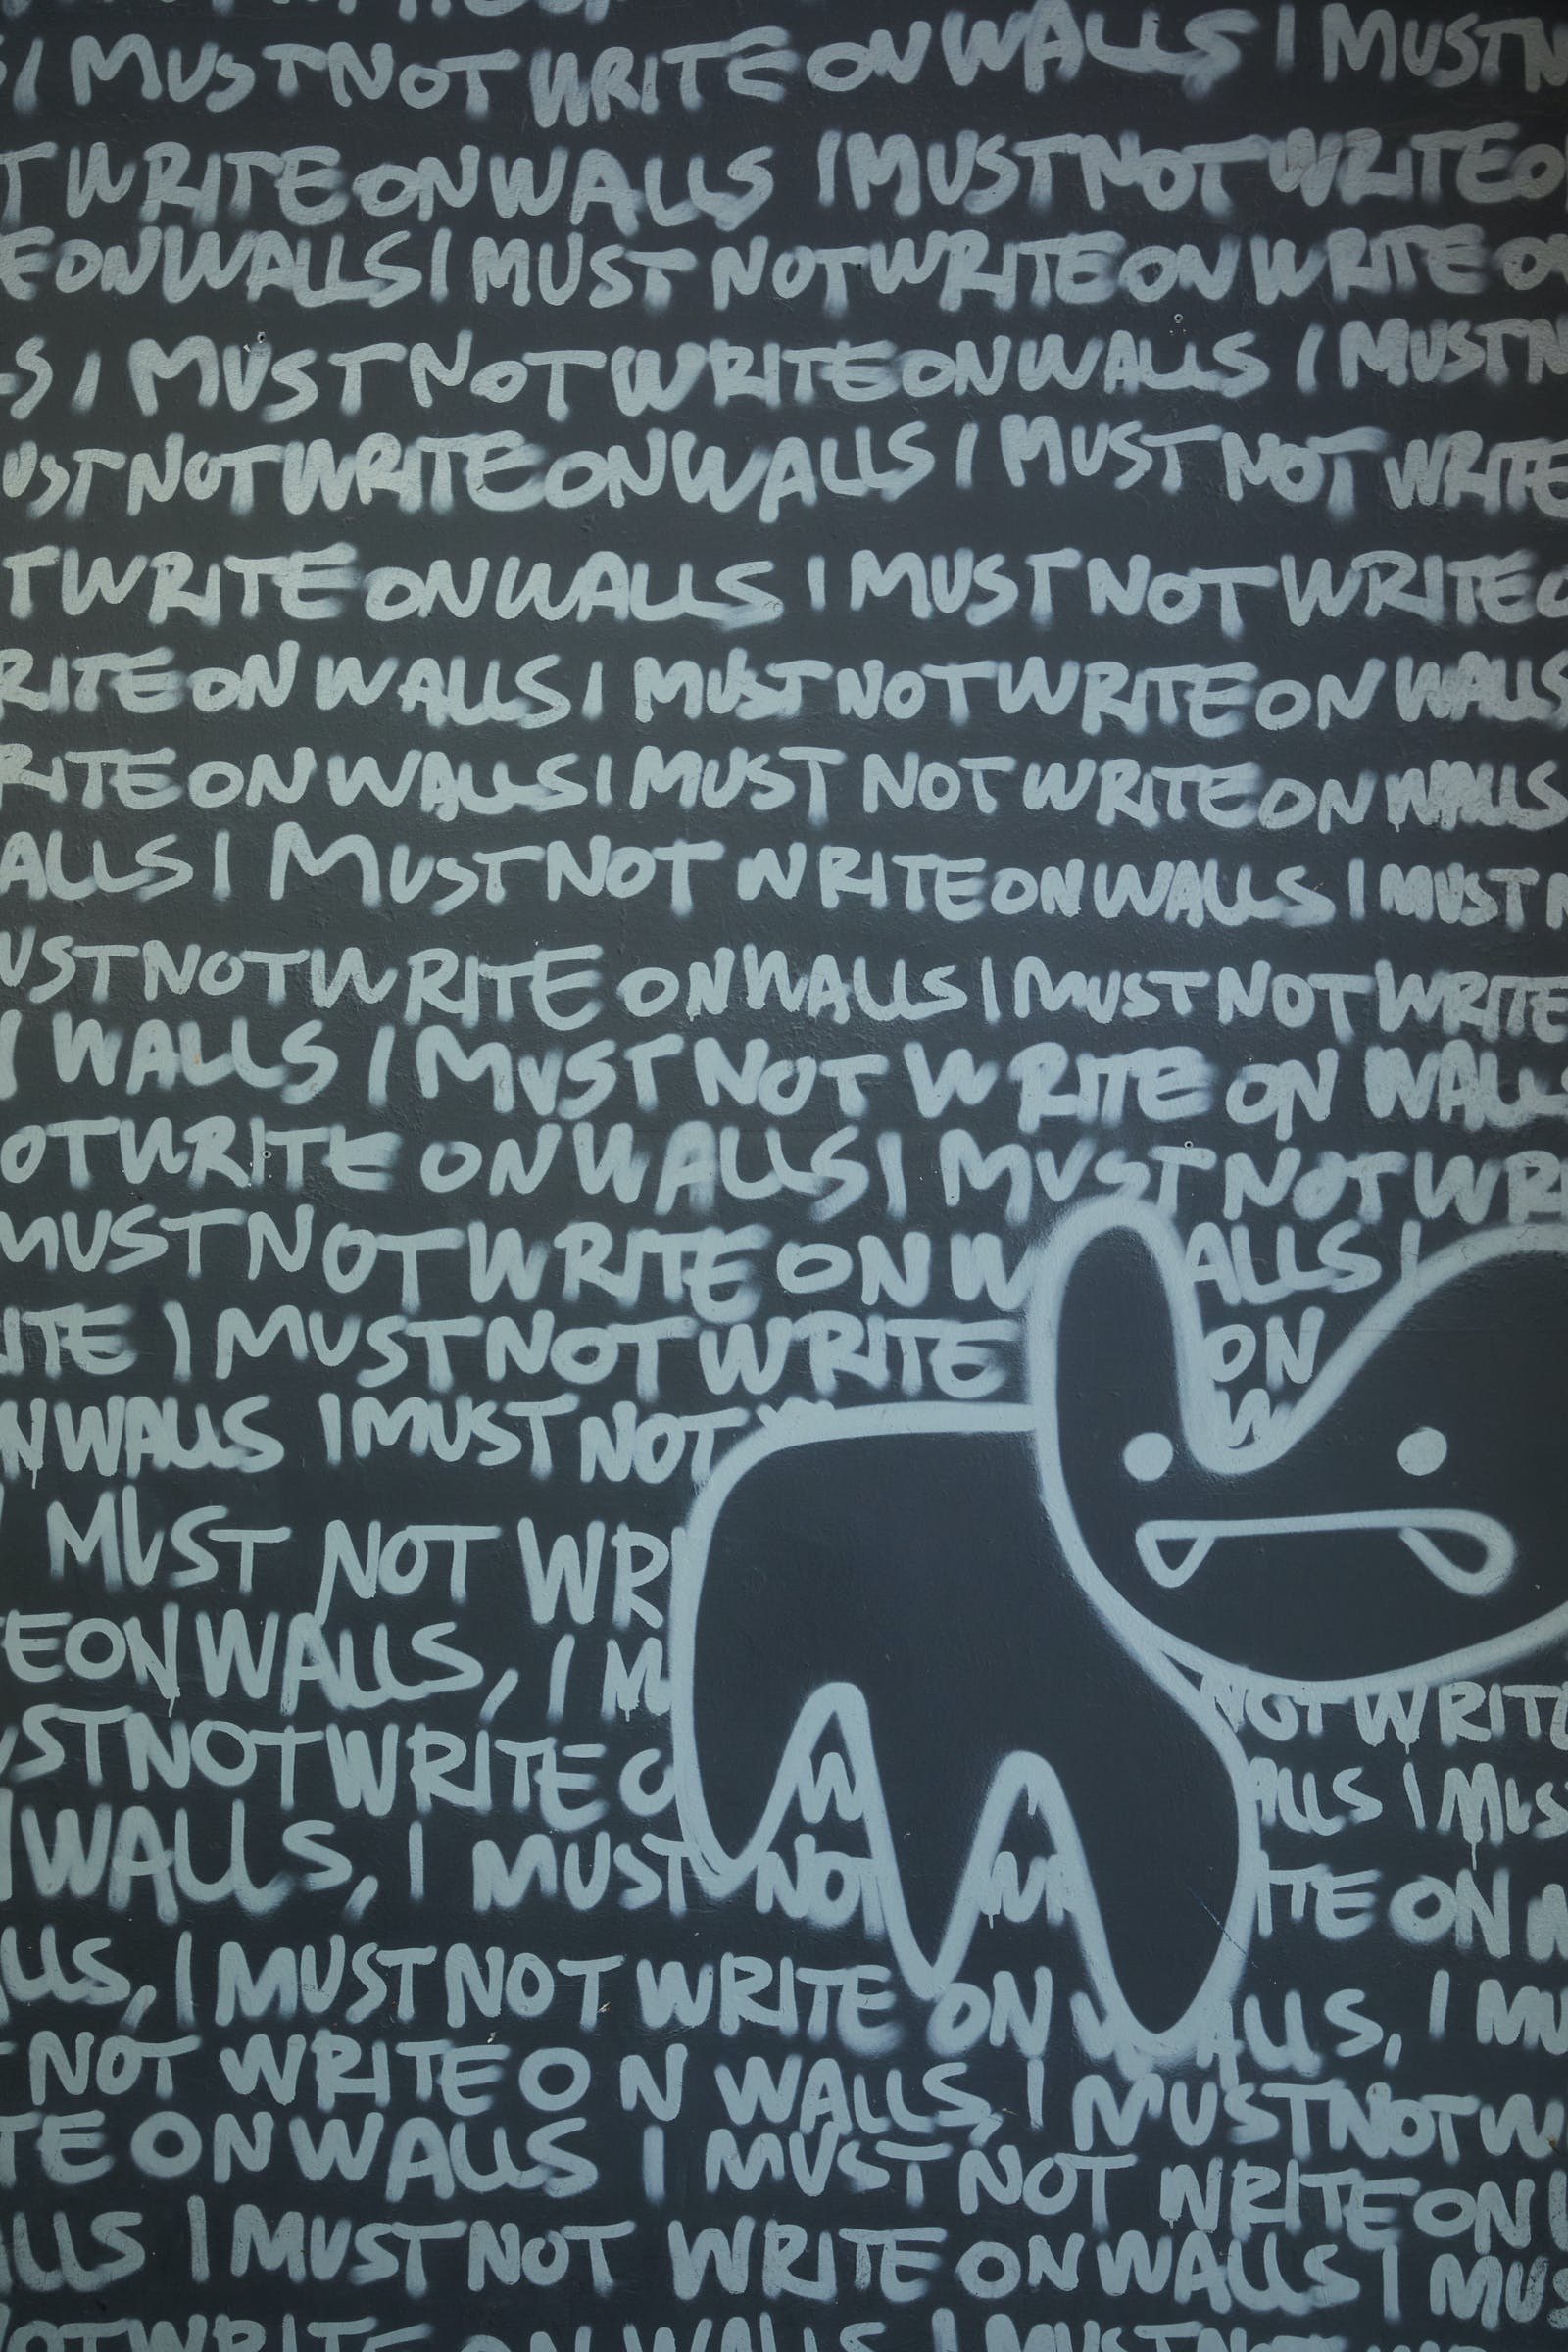 I MUST NOT WRITE ON WALLS I MUST
WRITE ON WALLS I MUST NOT WRITE
ON WALLS I MUST NOT WRITE ON WRITE
I MUST NOT WRITE ON WALLS I MUST
NOT WRITE ON WALLS I MUST NOT WRITE
WRITE ON WALLS I MUST NOT WRITE
ON WALLS I MUST NOT WRITE ON WALLS
ON WALLS I MUST NOT WRITE ON WALLS
ALLS I MUST NOT WRITE ON WALLS I MUST N
UST NOT WRITE ON WALLS I MUST NOT WRITE
WALLS I MUST NOT WRITE ON WALLS
OT WRITE ON WALLS I MUST NOT WRI
MUST NOT WRITE ON W ALLS I
ITE I MUST NOT WRITE ON
N WALLS I MUST NOT W
MUST NOT WR
E ON WALLS, I M
UST NOT WRITE O W NOT WRITE
WALLS, I MUST NOT WR ALLS I MUS
ITE ON
LLS, I MUST NOT WRITE ON W ALLS, I MU
NOT WRITE ON WALLS, I MUST NOT W
TE ON WALLS I MUST NOT WRITE ON
LLS I MUST NOT WRITE ON WALLS I MUS
OT WRITE ON WALLS I MUST NOT